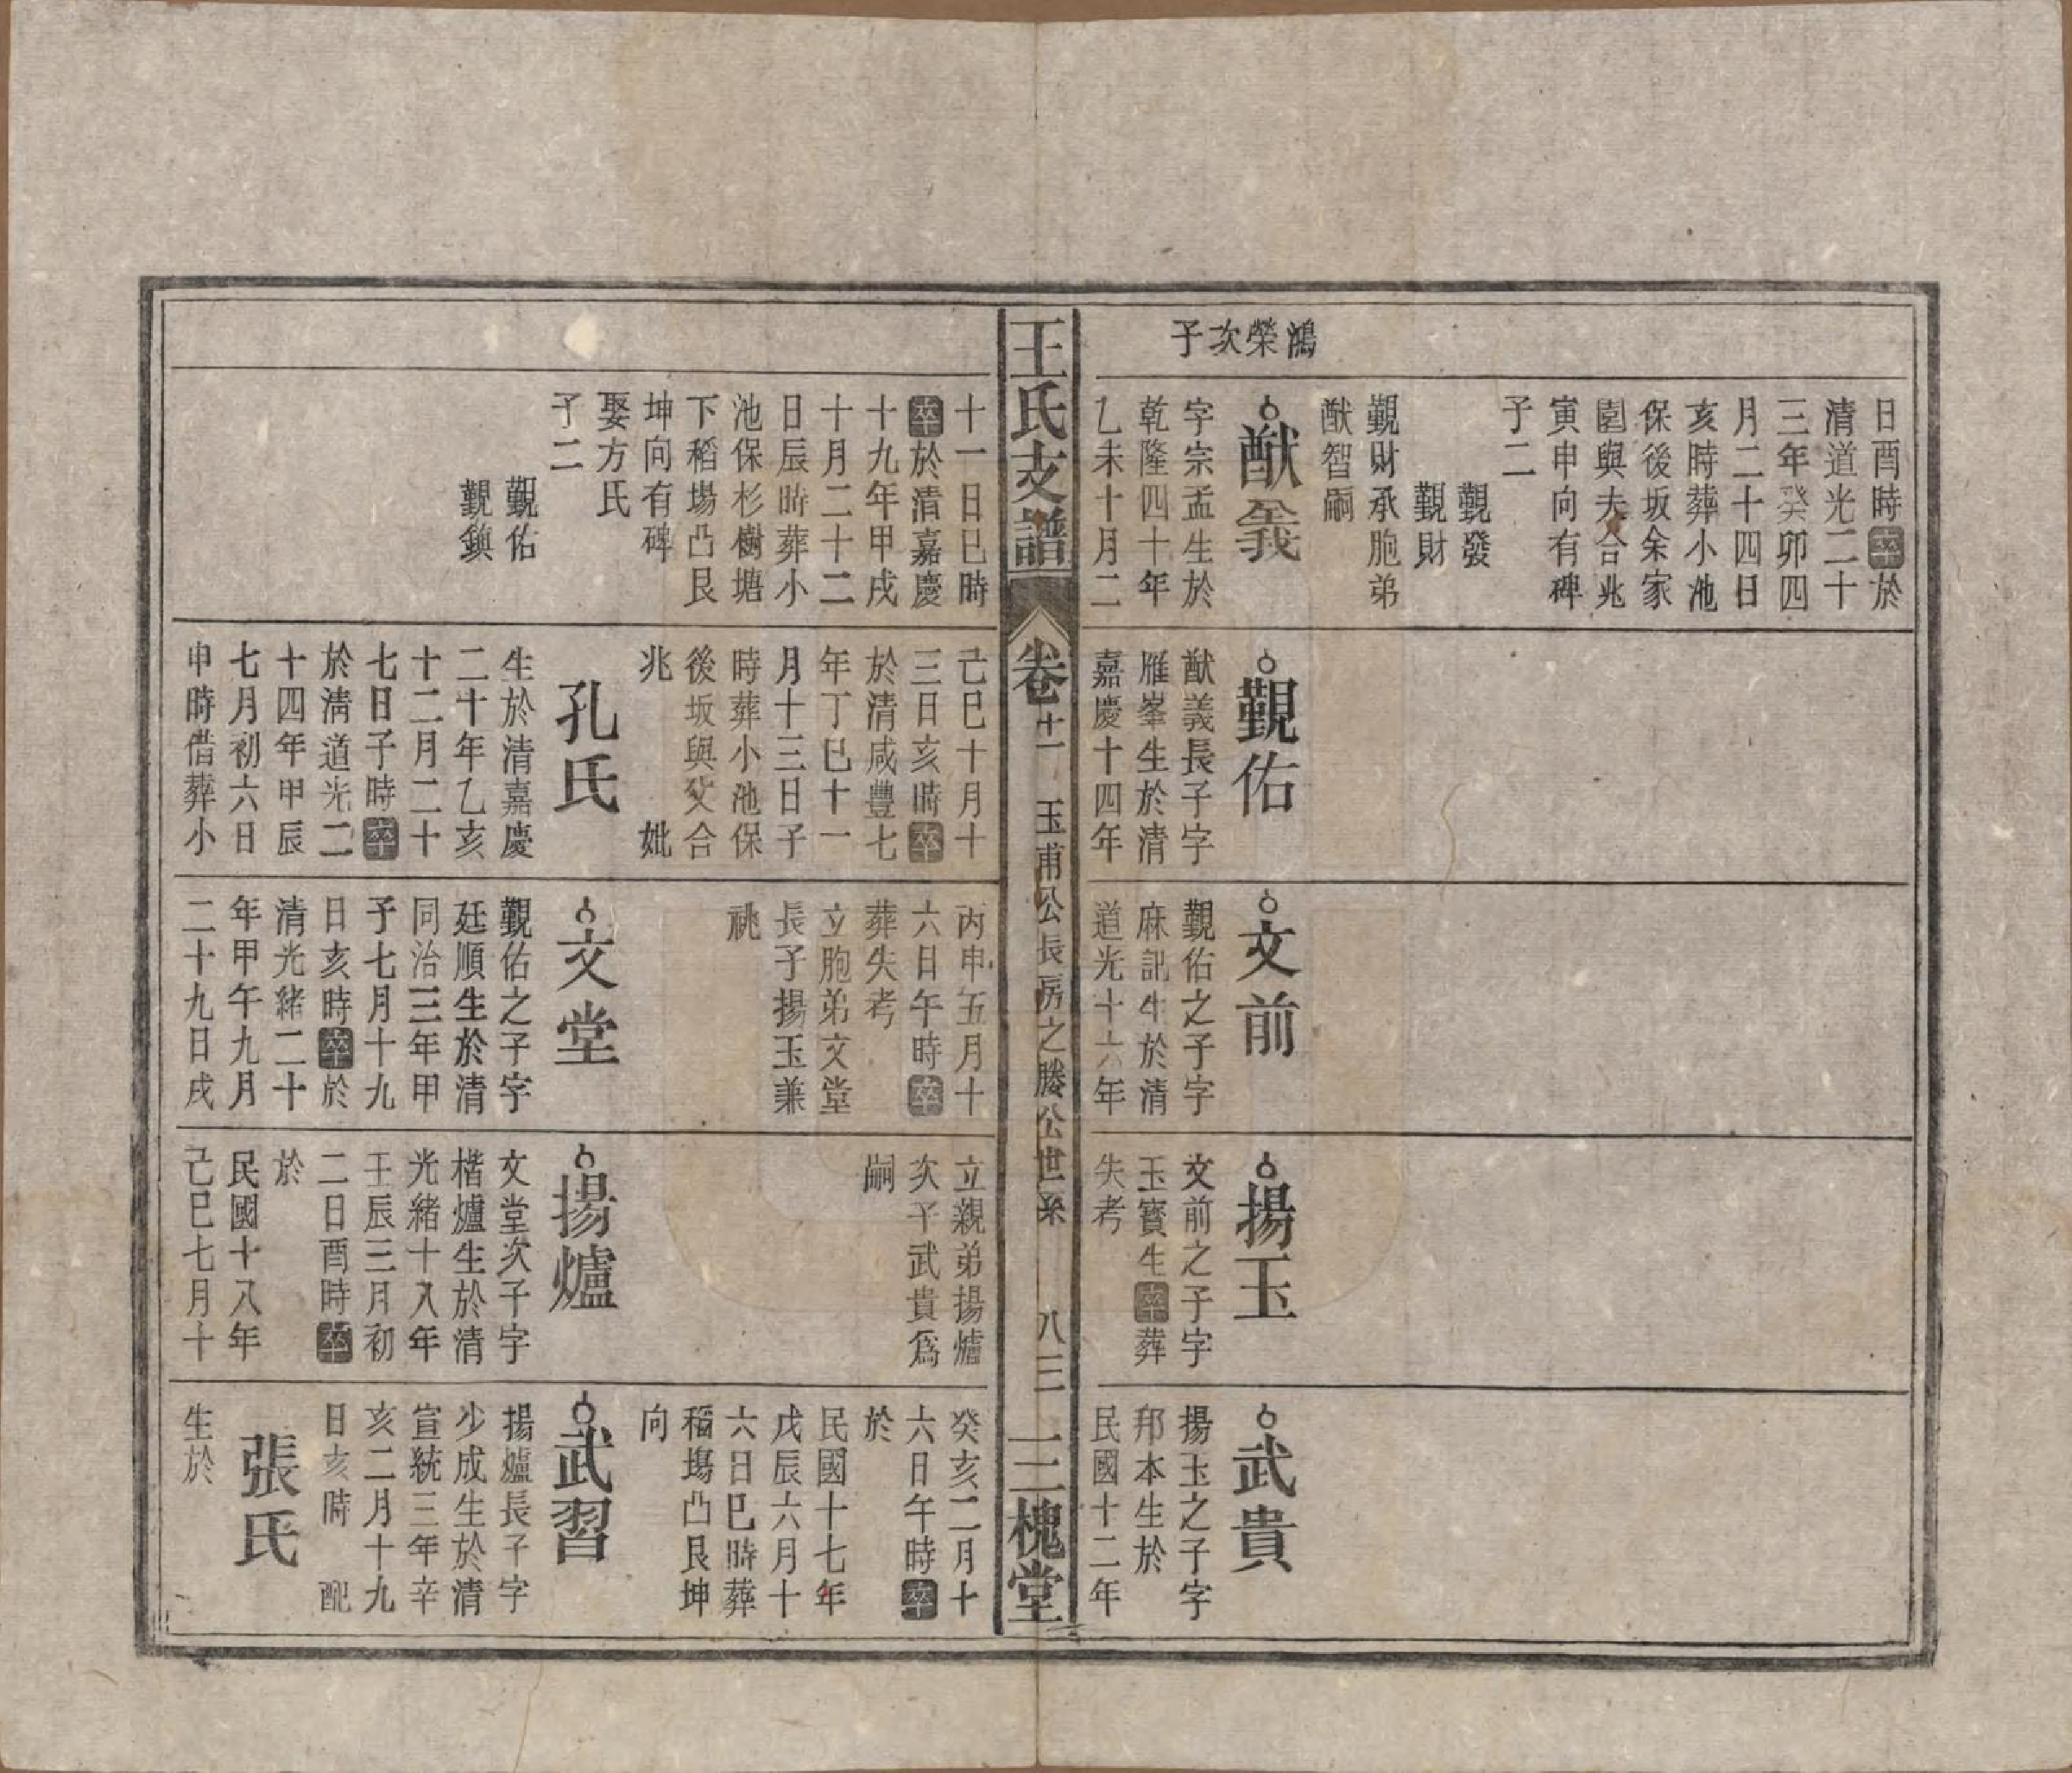 鴻榮次子
日酉時卒於
清道光二十
三年癸卯四
月二十四日
亥時葬小池
保後坂余家
園與夫合兆
寅申向有碑
子二
覲發
覲財
覲財承胞弟
猷智嗣
猷義
字宗孟生於
乾隆四十年
乙未十月二
覲佑
猷義長子字
雁峯生於清
嘉慶十四年
文前
覲佑之子字
麻訛生於清
道光十六年
揚玉
文前之子字
玉寶生卒葬
失考
武貴
揚玉之子字
邦本生於
民國十二年
王氏支譜
卷十一
玉甫公長房之勝公世系
八三
三槐堂
十一日巳時
卒於清嘉慶
十九年甲戌
十月二十二
日辰時葬小
池保杉樹塘
下稻場凸艮
坤向有碑
娶方氏
子二
覲佑
覲鎮
己巳十月十
三日亥時卒
於清咸豐七
年丁巳十一
月十三日子
時葬小池保
後坂與父合
兆 妣
孔氏
生於清嘉慶
二十年乙亥
十二月二十
七日子時卒
於清道光二
十四年甲辰
七月初六日
申時借葬小
丙申五月十
六日午時卒
葬失考
立胞弟文堂
長子揚玉兼
祧
文堂
覲佑之子字
廷順生於清
同治三年甲
子七月十九
日亥時卒於
清光緒二十
年甲午九月
二十九日戌
立親弟揚爐
次子武貴爲
嗣
揚爐
文堂次子字
楷爐生於清
光緒十八年
壬辰三月初
二日酉時卒
於
民國十八年
己巳七月十
癸亥二月十
六日午時卒
於
民國十七年
戊辰六月十
六日巳時葬
稻場凸艮坤
向
武習
揚爐長子字
少成生於清
宣統三年辛
亥二月十九
日亥時 配
張氏
生於